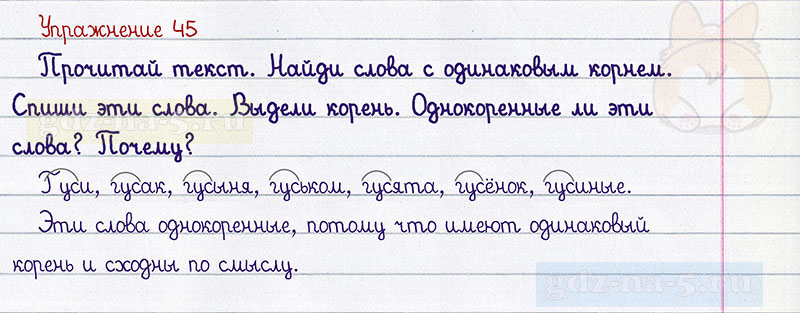 Упражнение 45
Прочитай текст. Найди слова с одинаковым корнем.
Спиши эти слова. Выдели корень. Однокоренные ли эти
слова? Почему?
Гуси, гусак, гусыня, гуськом, гусята, гусёнок, гусиные.
Эти слова однокоренные, потому что имеют одинаковый
корень и сходны по смыслу.
gdz-na-5.ru
gdz-na-5.ru